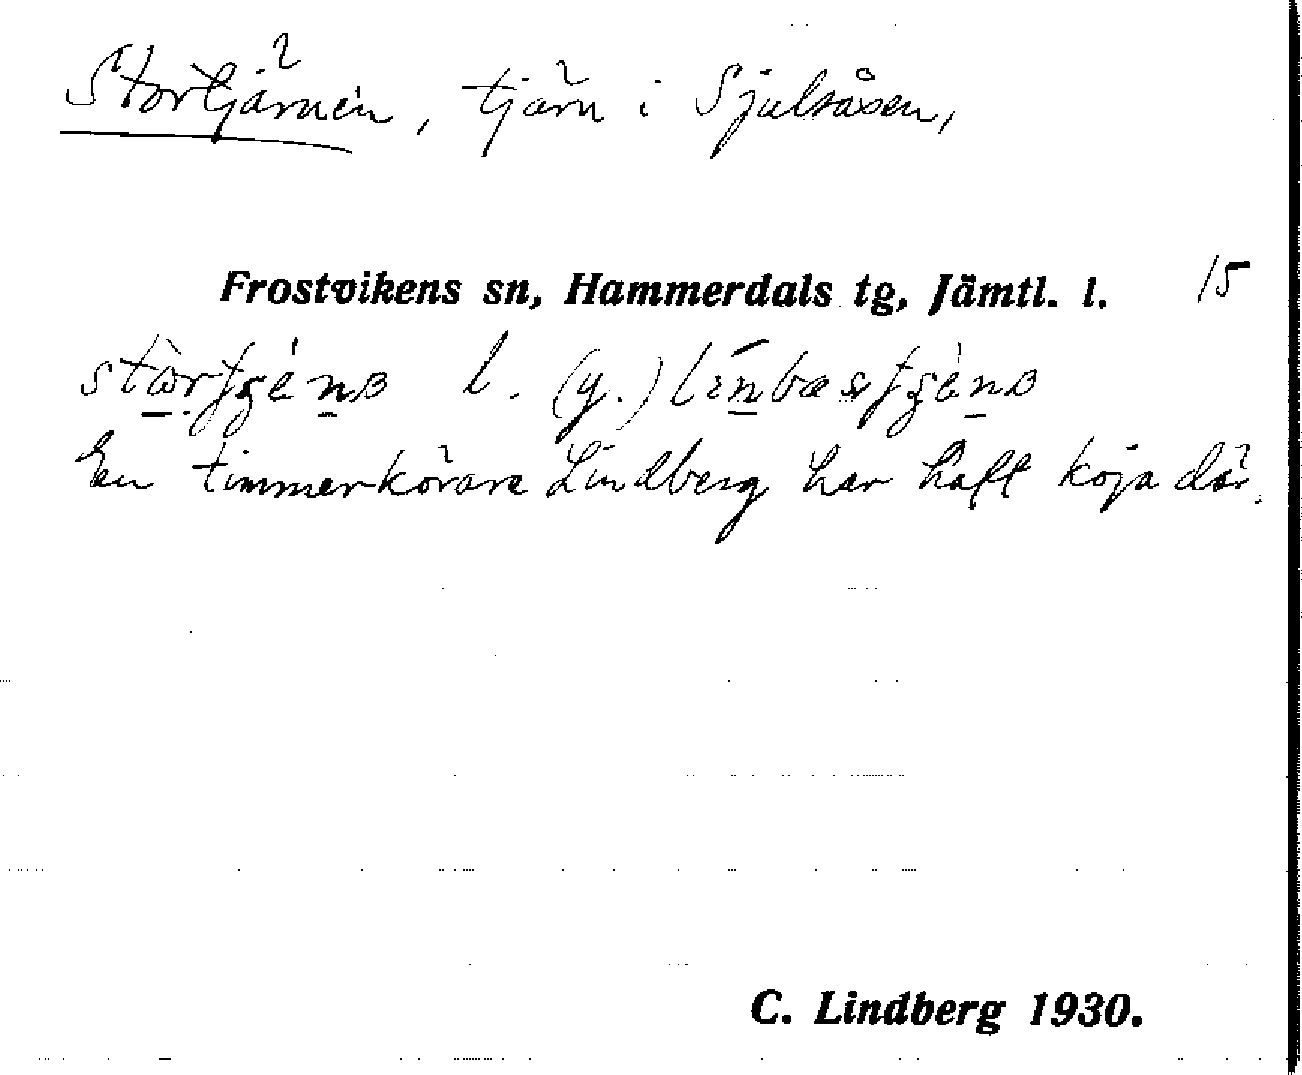 Stortjärnen, tjärn i Sjulsåsen,
Frostvikens sn, Hammerdals tg, Jämtl. l. 15
l. (y.)
En timmerkörare Lindberg har haft koja där.
C. Lindberg 1930.